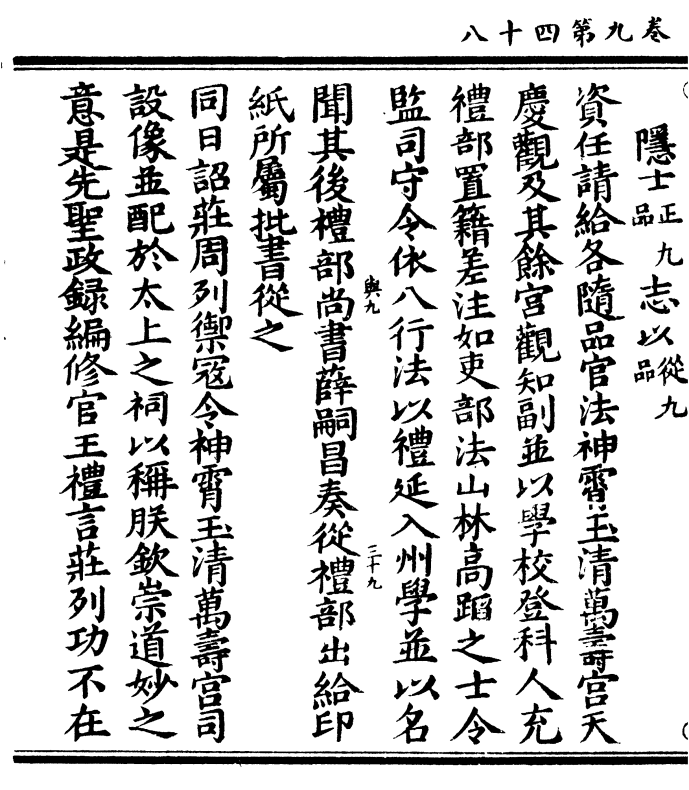 卷九第四十八
隱士正九品志以從九品
資任請給各隨品官法神霄玉清萬壽宮天
慶觀及其餘宮觀知副並以學校登科人充
禮部置籍差注如吏部法山林高蹈之士令
監司守令依八行法以禮延入州學並以名
聞其後禮部尚書薛嗣昌奏從禮部出給印
與九
三十九
紙所屬批書從之
同日詔莊周列禦寇令神霄玉清萬壽宮司
設像並配於太上之祠以稱朕欽崇道妙之
意是先聖政録編修官王禮言莊列功不在